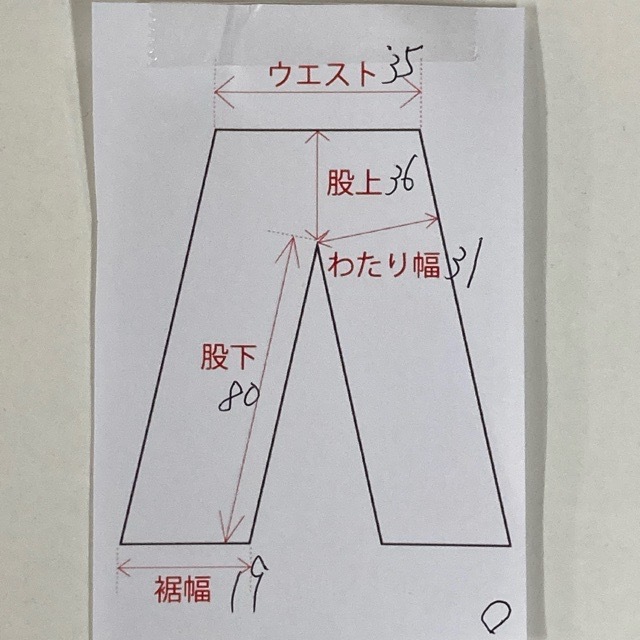 ウエスト 35
股上 36
わたり幅 31
股下
80
裾幅 19
0